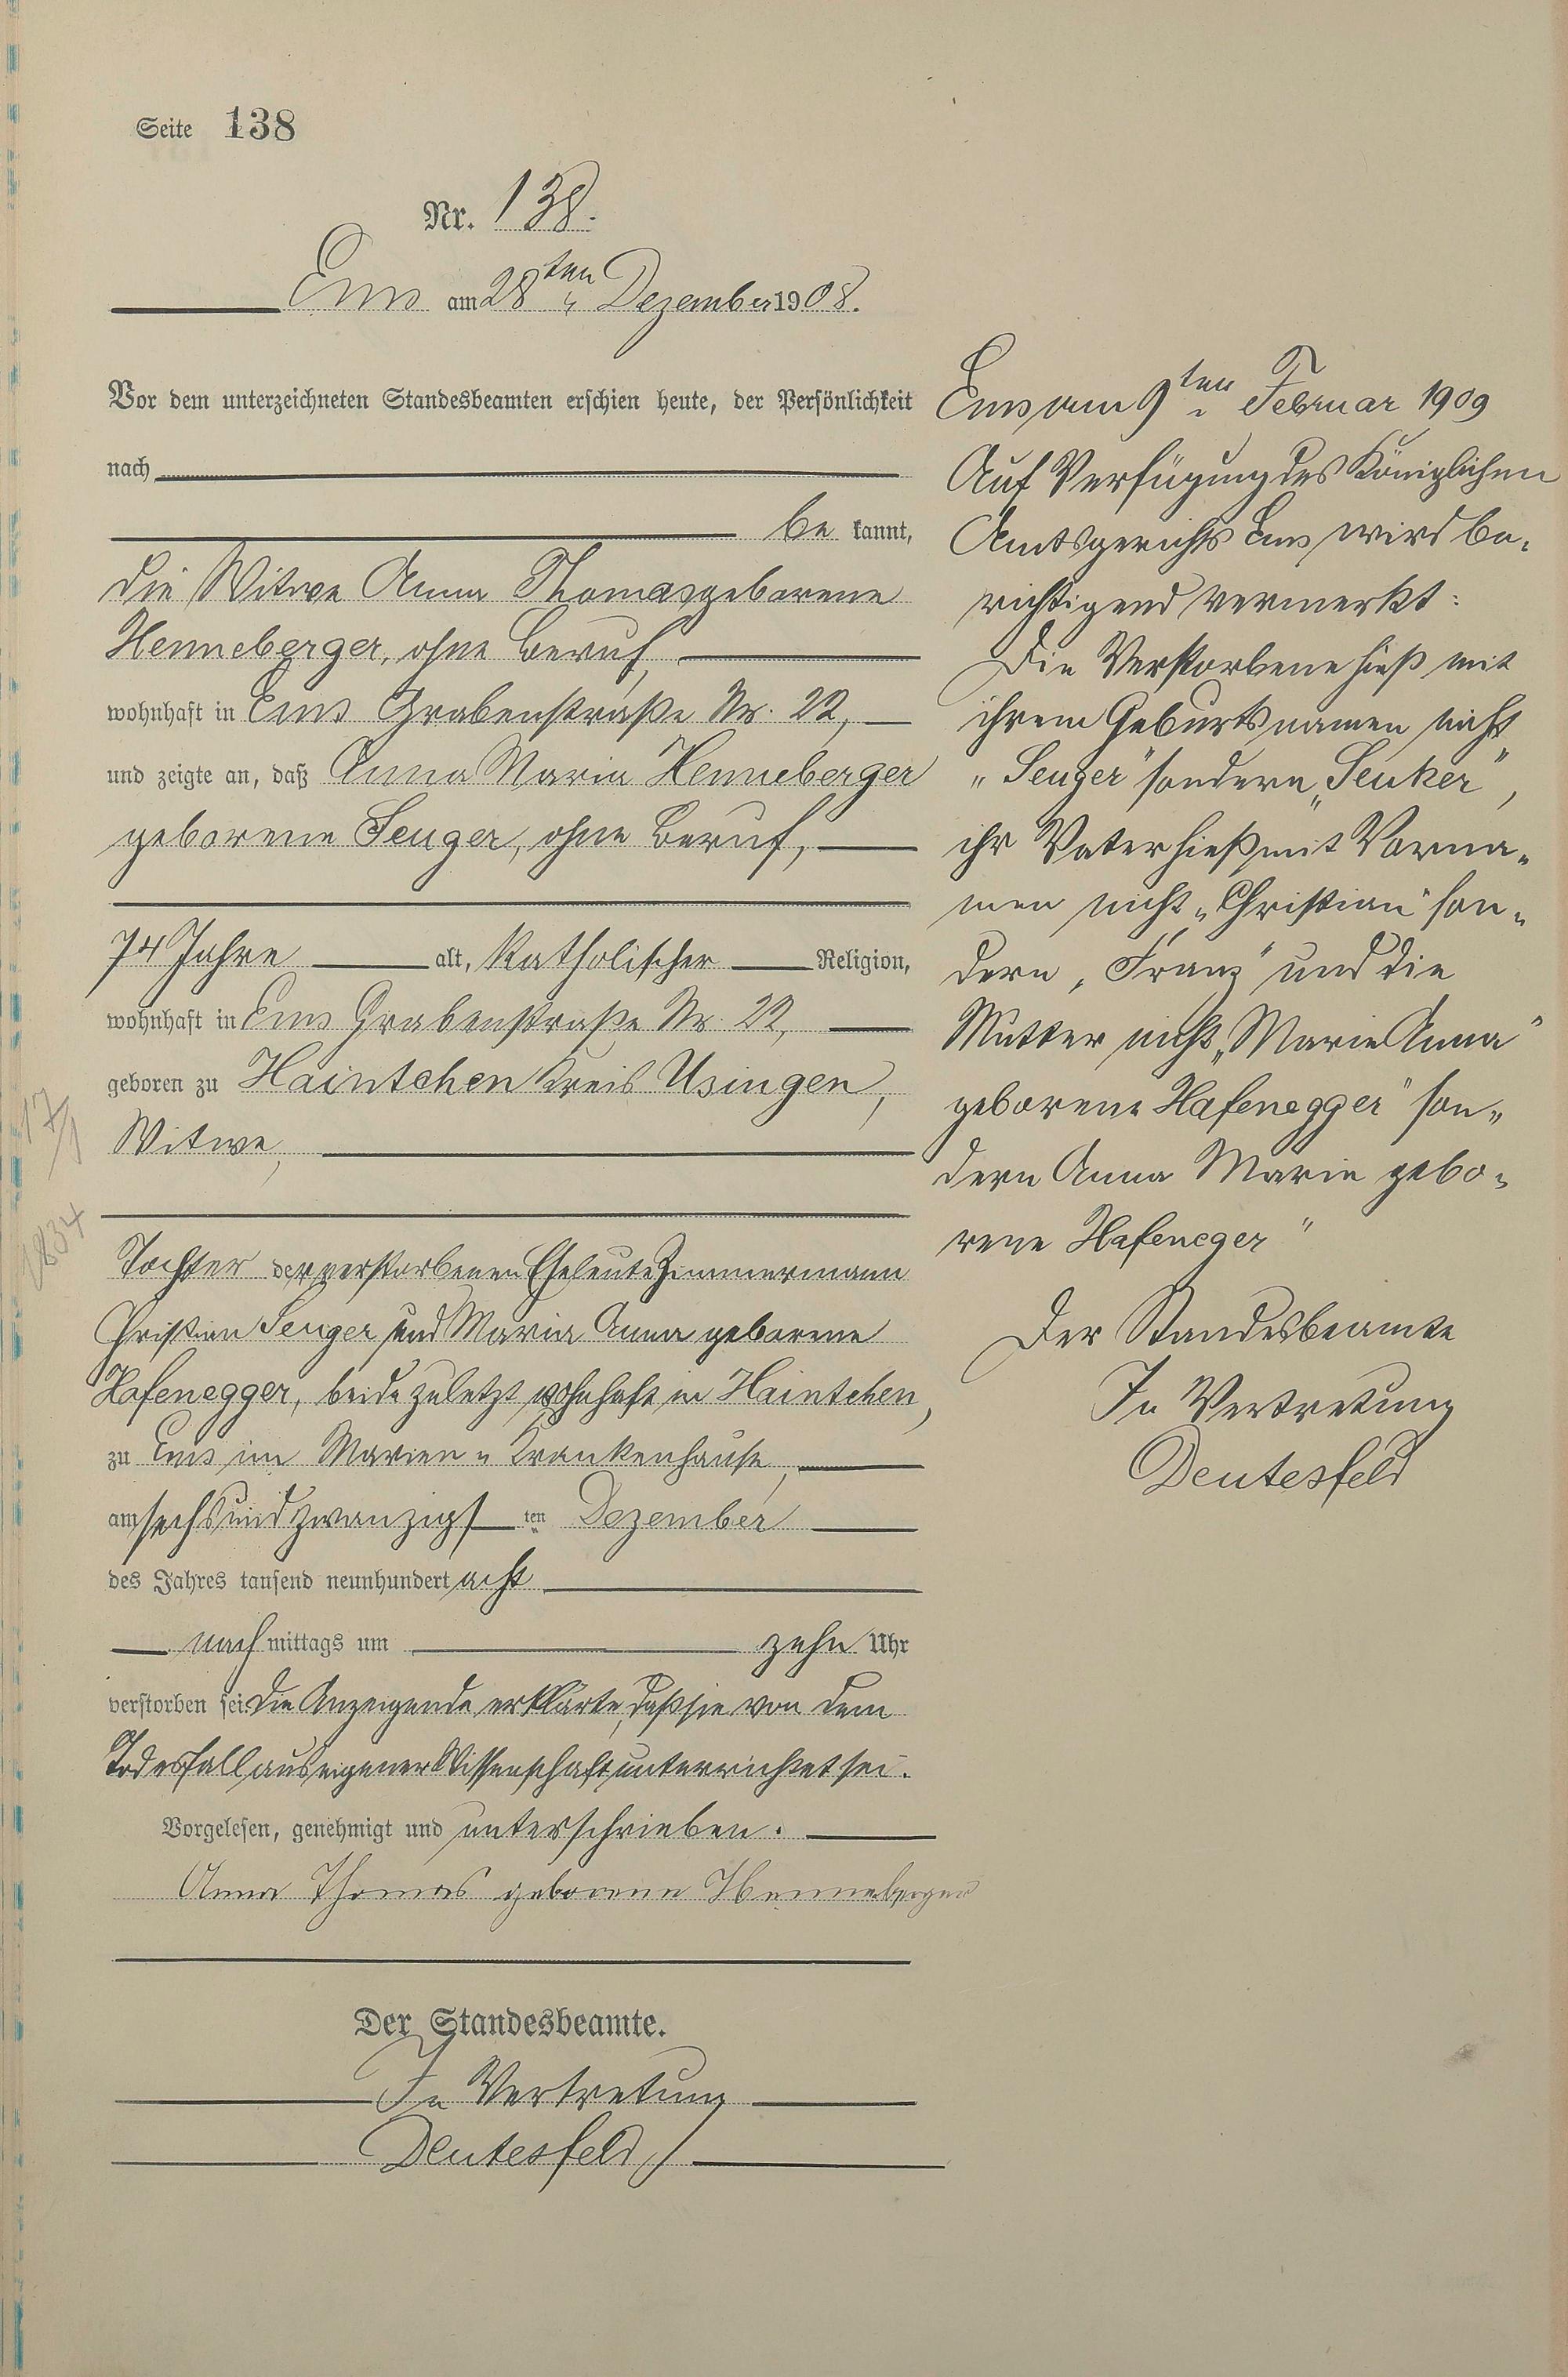 Seite 138
Nr. 138.
Ems am 28ten Dezember 1908.
Vor dem unterzeichneten Standesbeamten erschien heute, der Persönlichkeit
nach
be kannt,
die Witwe Anna Thomas geborene
Henneberger, ohne Beruf,
wohnhaft in Ems Grabenstraße Nr. 22,
und zeigte an, daß Anna Maria Henneberger
geborene Senger, ohne Beruf,
74 Jahre alt, katholischer Religion,
wohnhaft in Ems Grabenstraße Nr. 22,
geboren zu Haintchen Kreis Usingen,
Witwe,
Tochter der verstorbenen Eheleute Zimmermann
Christian Senger und Maria Anna geborene
Hafenegger, beide zuletzt wohnhaft in Haintchen,
zu Ems im Marien-Krankenhause,
am sechsundzwanzigsten Dezember
des Jahres tausend neunhundert acht
nach mittags um zehn Uhr
verstorben sei. Die Anzeigende erklärte, daß sie von dem
Todesfall aus eigener Wissenschaft unterrichtet sei.
Vorgelesen, genehmigt und unterschrieben.
Anna Thomas geborene Henneberger
Der Standesbeamte.
In Vertretung
Deutesfeld
Ems am 9ten Februar 1909
Auf Verfügung des Königlichen
Amtsgerichts Ems wird be-
richtigend vermerkt:
Die Verstorbene hieß mit
ihrem Geburtsnamen nicht
"Senger" sondern "Seuker",
ihr Vater hieß mit Vorna-
men nicht "Christian" son-
dern "Franz" und die
Mutter nicht "Maria Anna
geborene Hafenegger" son-
dern Anna Maria gebo-
rene Hafeneger"
Der Standesbeamte
In Vertretung
Deutesfeld
17/1
1834